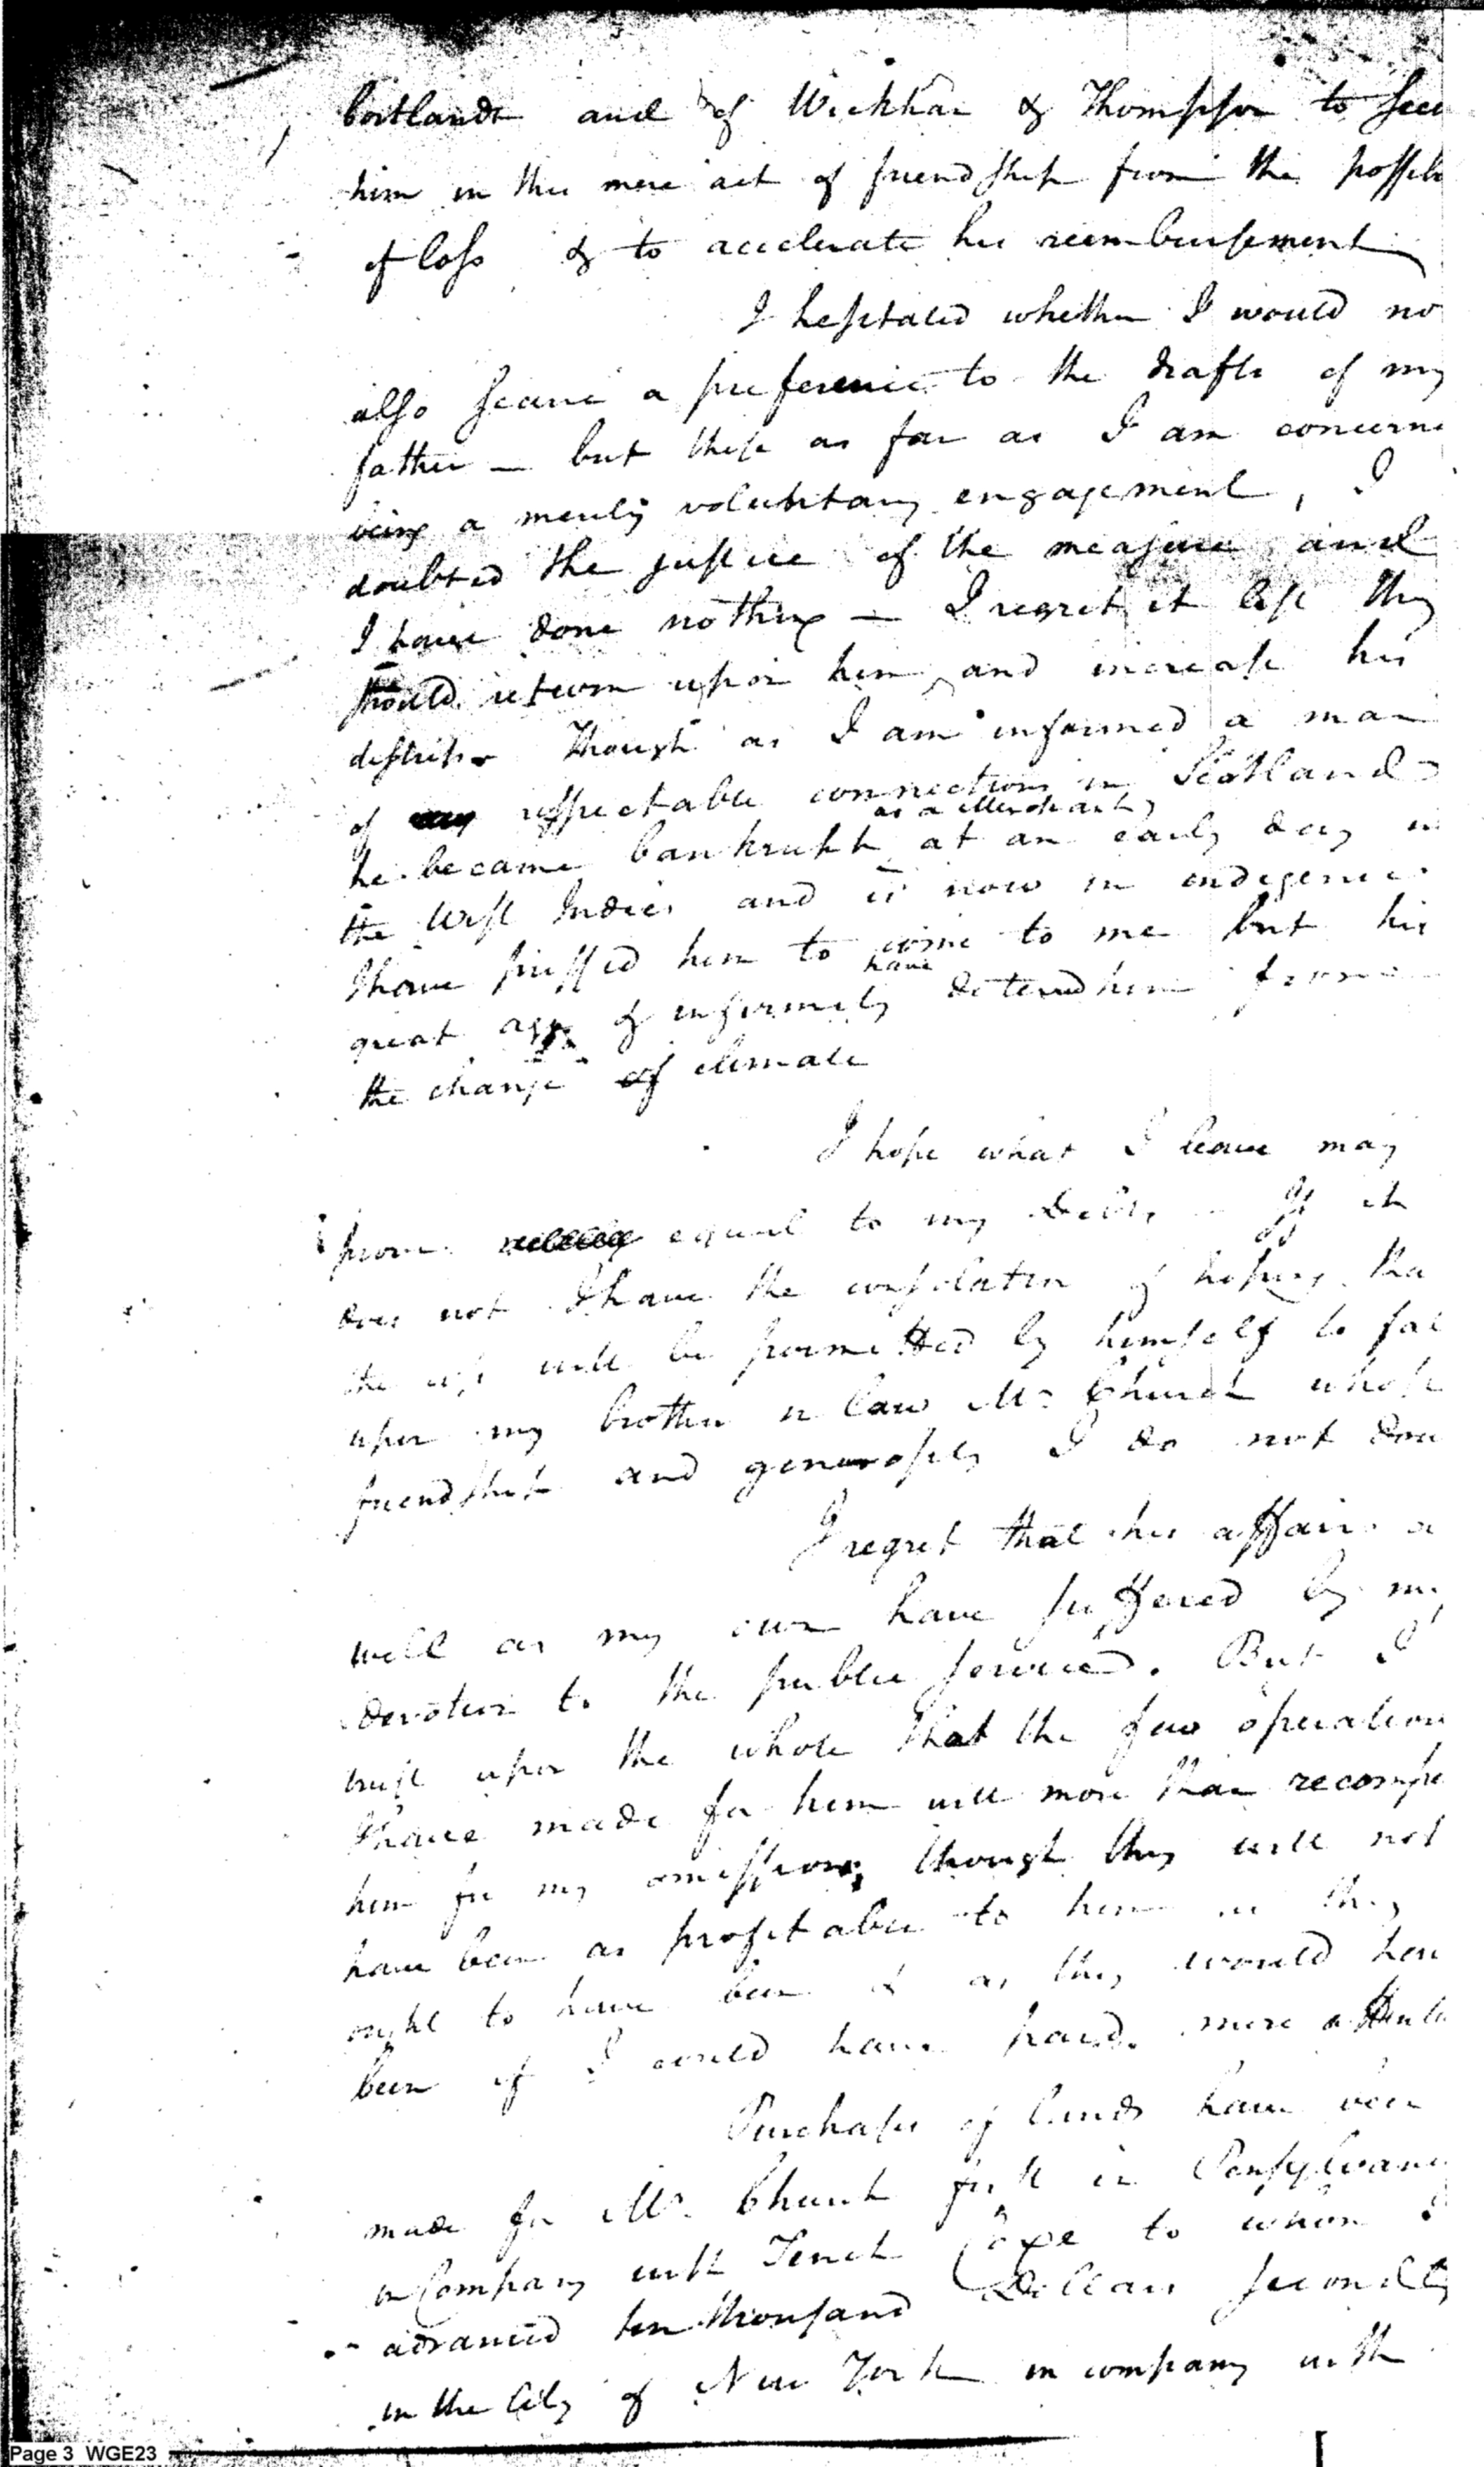 Cortlandt and of Wickhan & Thompson to secu
him in this mere act of friendship from the possib
of loss & to accelerate his reimbursement
I hesitated whether I would no
also secure a preference to the drafts of my
father — but these as far as I am concerne
being a merely voluntary engagement, I
doubted the justice of the measure and
I have done nothing — I regret it lest they
should return upon him and increase his
distress Though as I am informed a man
of respectable connections in Scotland
he became bankrupt as a Merchant at an early day in
the West Indies and is now in indigence
I have pressed him to come to me but his
great age & infirmity have deterred him from
the change of climate
I hope what I leave may
prove equal to my Debts If it
does not I have the consolation of hoping tha
the will be permitted by himself to fal
upon my brother in law Mr. Church whose
friendship and generosity I do not dou
I regret that his affairs a
well as my own have suffered by my
devotion to the public service. But I
trust upon the whole that the few operation
I have made for him will more than recompe
him for my omissions, though they will not
have been as profitable to him as they
ought to have been & as they would hav
been if I could have paid more attentio
Purchases of lands have been
made for Mr. Church first in Pensylvany
in Company with Tench Coxe to whom I
advanced ten thousand Dollars secondly
in the City of New York in company with
Page 3 WGE23